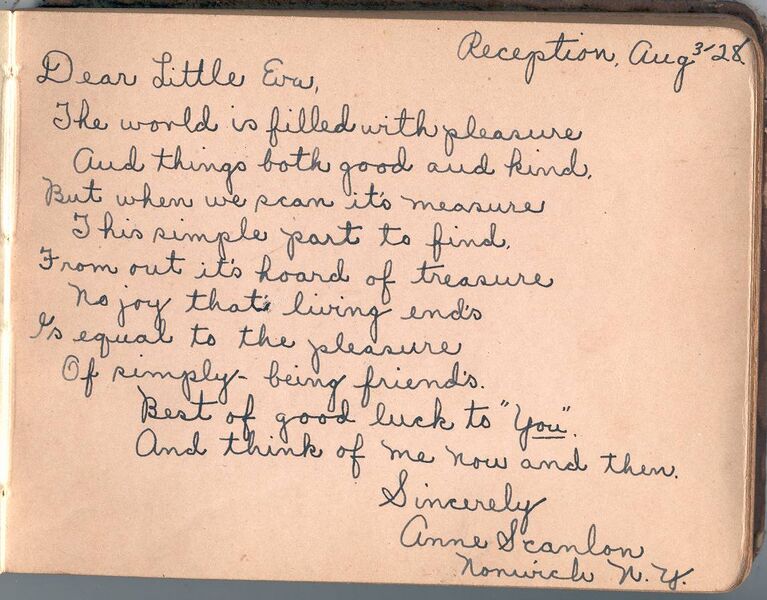 Reception, Aug 3/28
Dear Little Eva,
The world is filled with pleasure
And things both good and kind.
But when we scan it's measure
This simple part to find.
From out it's hoard of treasure
No joy that's living end's
Is equal to the pleasure
Of simply - being friend's.
Best of good luck to "You".
And think of me now and then.
Sincerely
Anne Scanlon
Norwich N.Y.